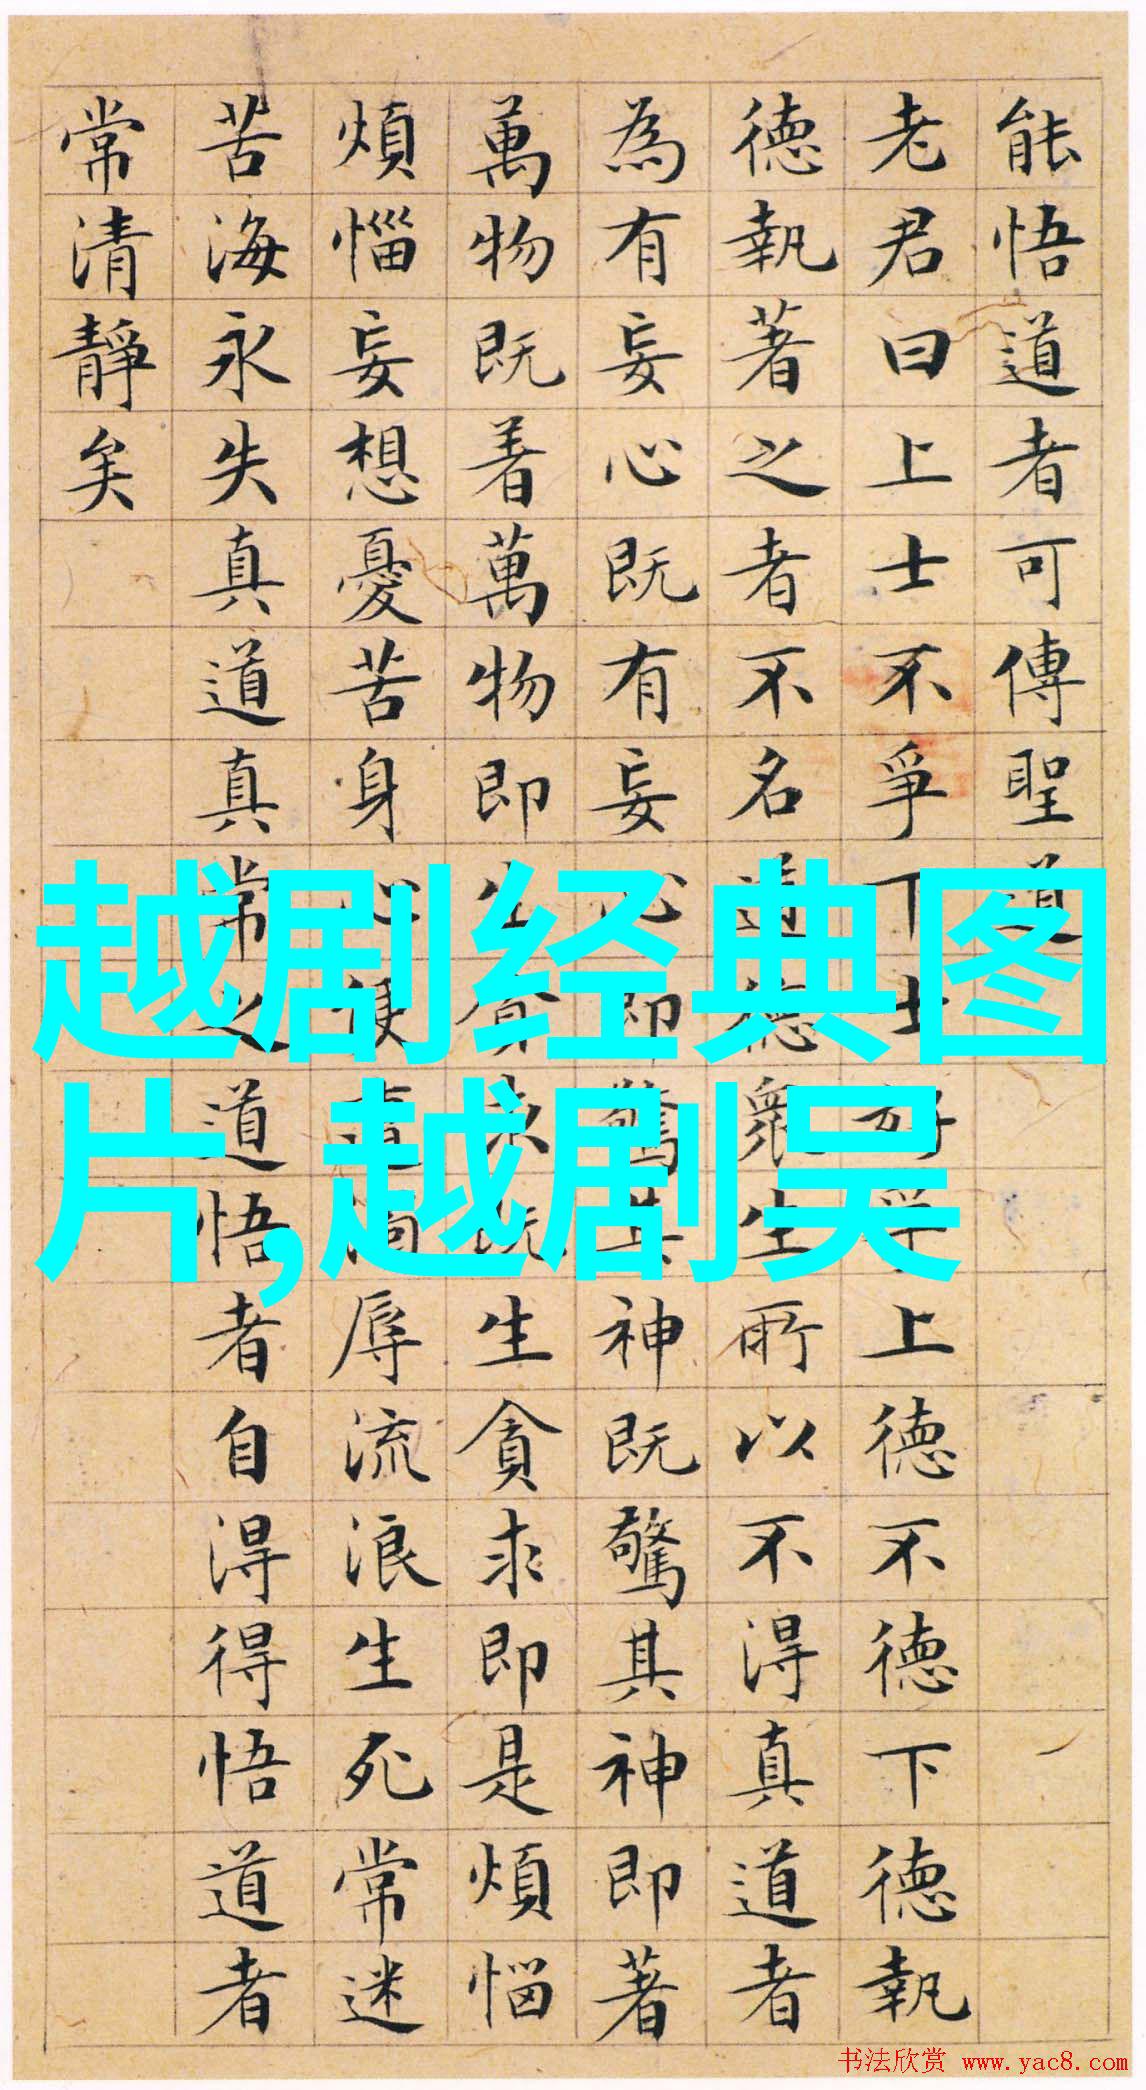 能悟道者可傳聖道
老君曰上士不爭下士好爭上德不德下德執
德執著之者不名道德眾生所以不得真道者
為有妄心既有妄心即驚其神既驚其神即著
萬物既着萬物即生貪求既生貪求即是煩惱
煩惱妄想憂苦身心便遭濁辱流浪生死常迷
苦海永失真道真常之道悟者自得得悟道者
常清靜矣
越剧经典图
片,越剧吴
书法欣赏 www.yac8.com